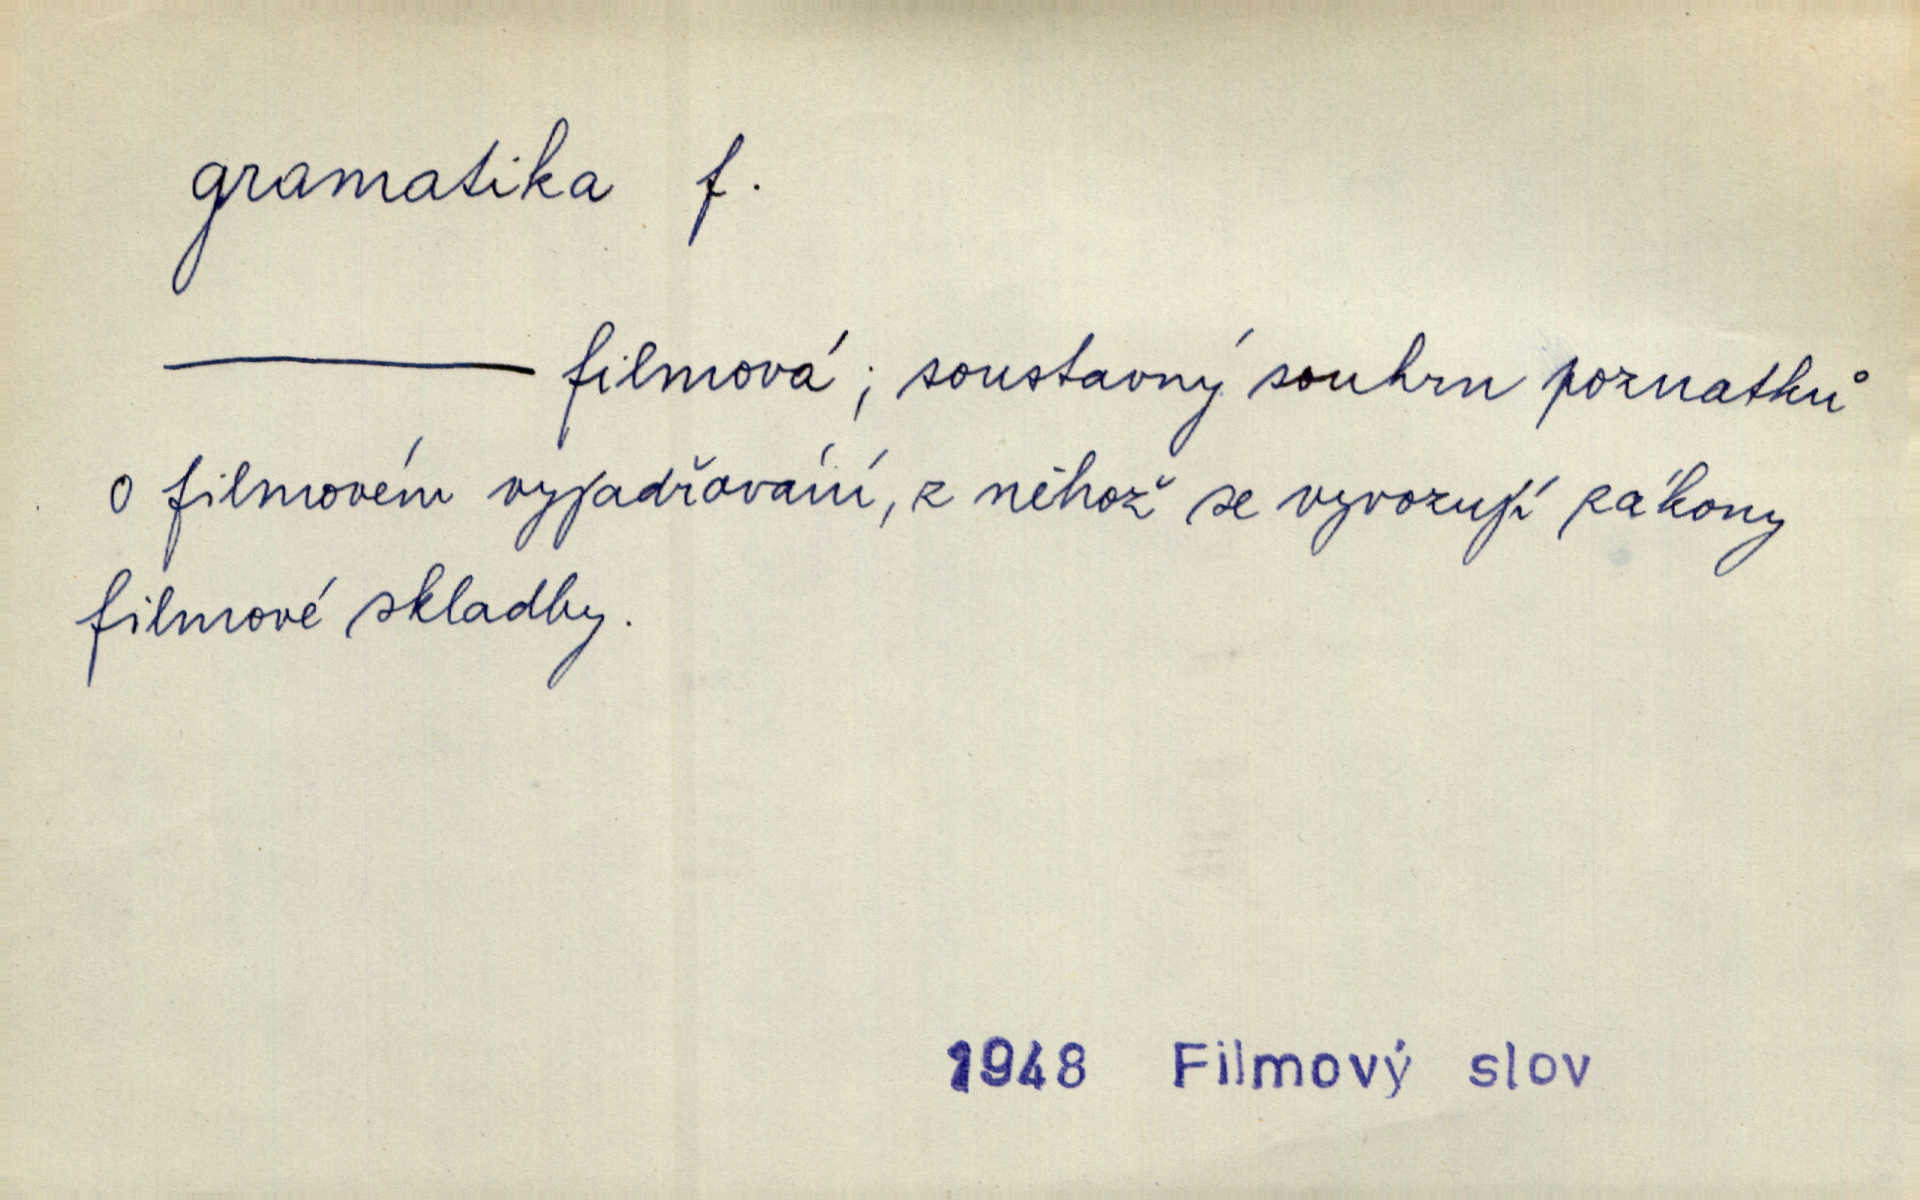 gramatika f.
——— filmová; soustavný souhrn poznatků
o filmovém vyjadřování, z něhož se vyvozují zákony
filmové skladby.
1948 Filmový slov